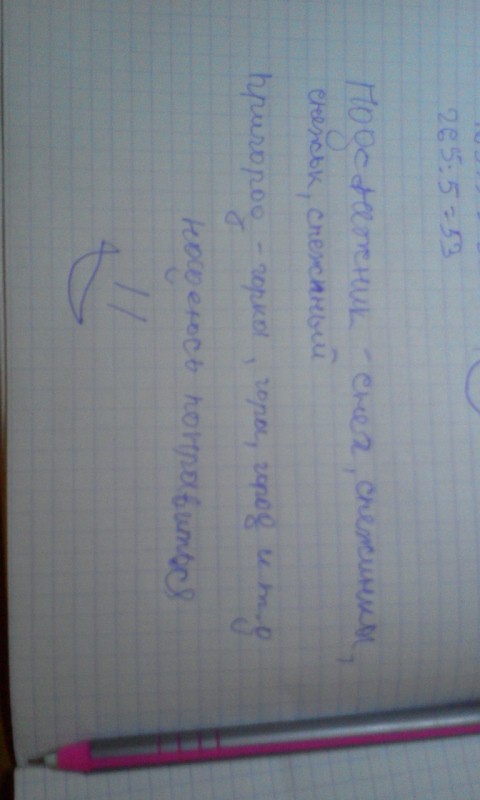 265:5=53
Подснежник - снег, снежинки,
снежок, снежный
Пригород - горка, гора, город и т.д
надеюсь понравиться